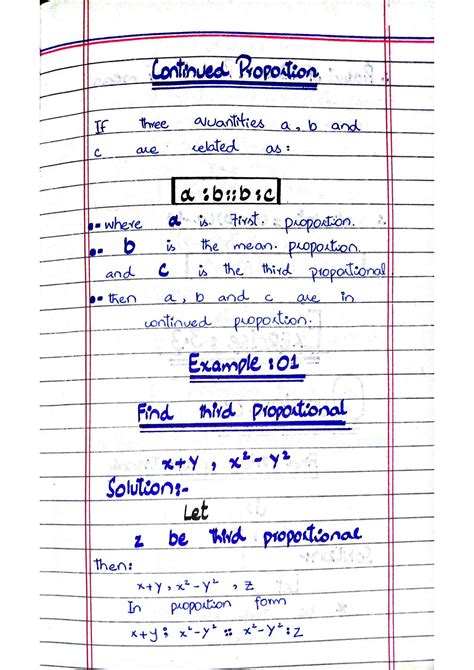 Continued Proportion
If three quantities a, b and
c are related as:
a : b :: b : c
where a is First. proportion.
b is the mean. proportion.
and c is the third proportional
then a, b and c are in
continued proportion.
Example : 01
Find third proportional
x+y , x²-y²
Solution:-
Let
z be third proportional
then:
x+y, x²-y² , z
In proportion form
x+y : x²-y² :: x²-y² : z